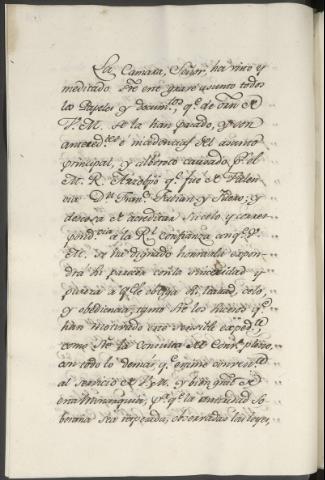 La Camara, Señor, ha visto y
meditado sre este grave asunto todos
los Papeles y docum.tos q.e de orn de
V. M. se la han pasado, y son
anteced.tes e incidencias del asunto
principal, y alboroto causado, p.r el
M. R. Arzobpo q.e fué de Valen
cia D.n Fran.co Fabian y Fuero; y
deseosa de acreditar su celo y corres
pond.cia a la R.l Confianza con q.e V.
M. se ha dignado honrarla expon
drá su parecer con la sinceridad y
pureza a q.e le obliga su lealtad, celo,
y obediencia, tanto sre los hechos q.e
han motivado este sensible exped.te,
como sre la Consulta del Cons.o pleno,
con todo lo demas q.e estime conven.te
al servicio de V. M. y bien gral de
esta Monarquia, p.a q.e la autoridad so
berana sea respetada, observadas las leyes,